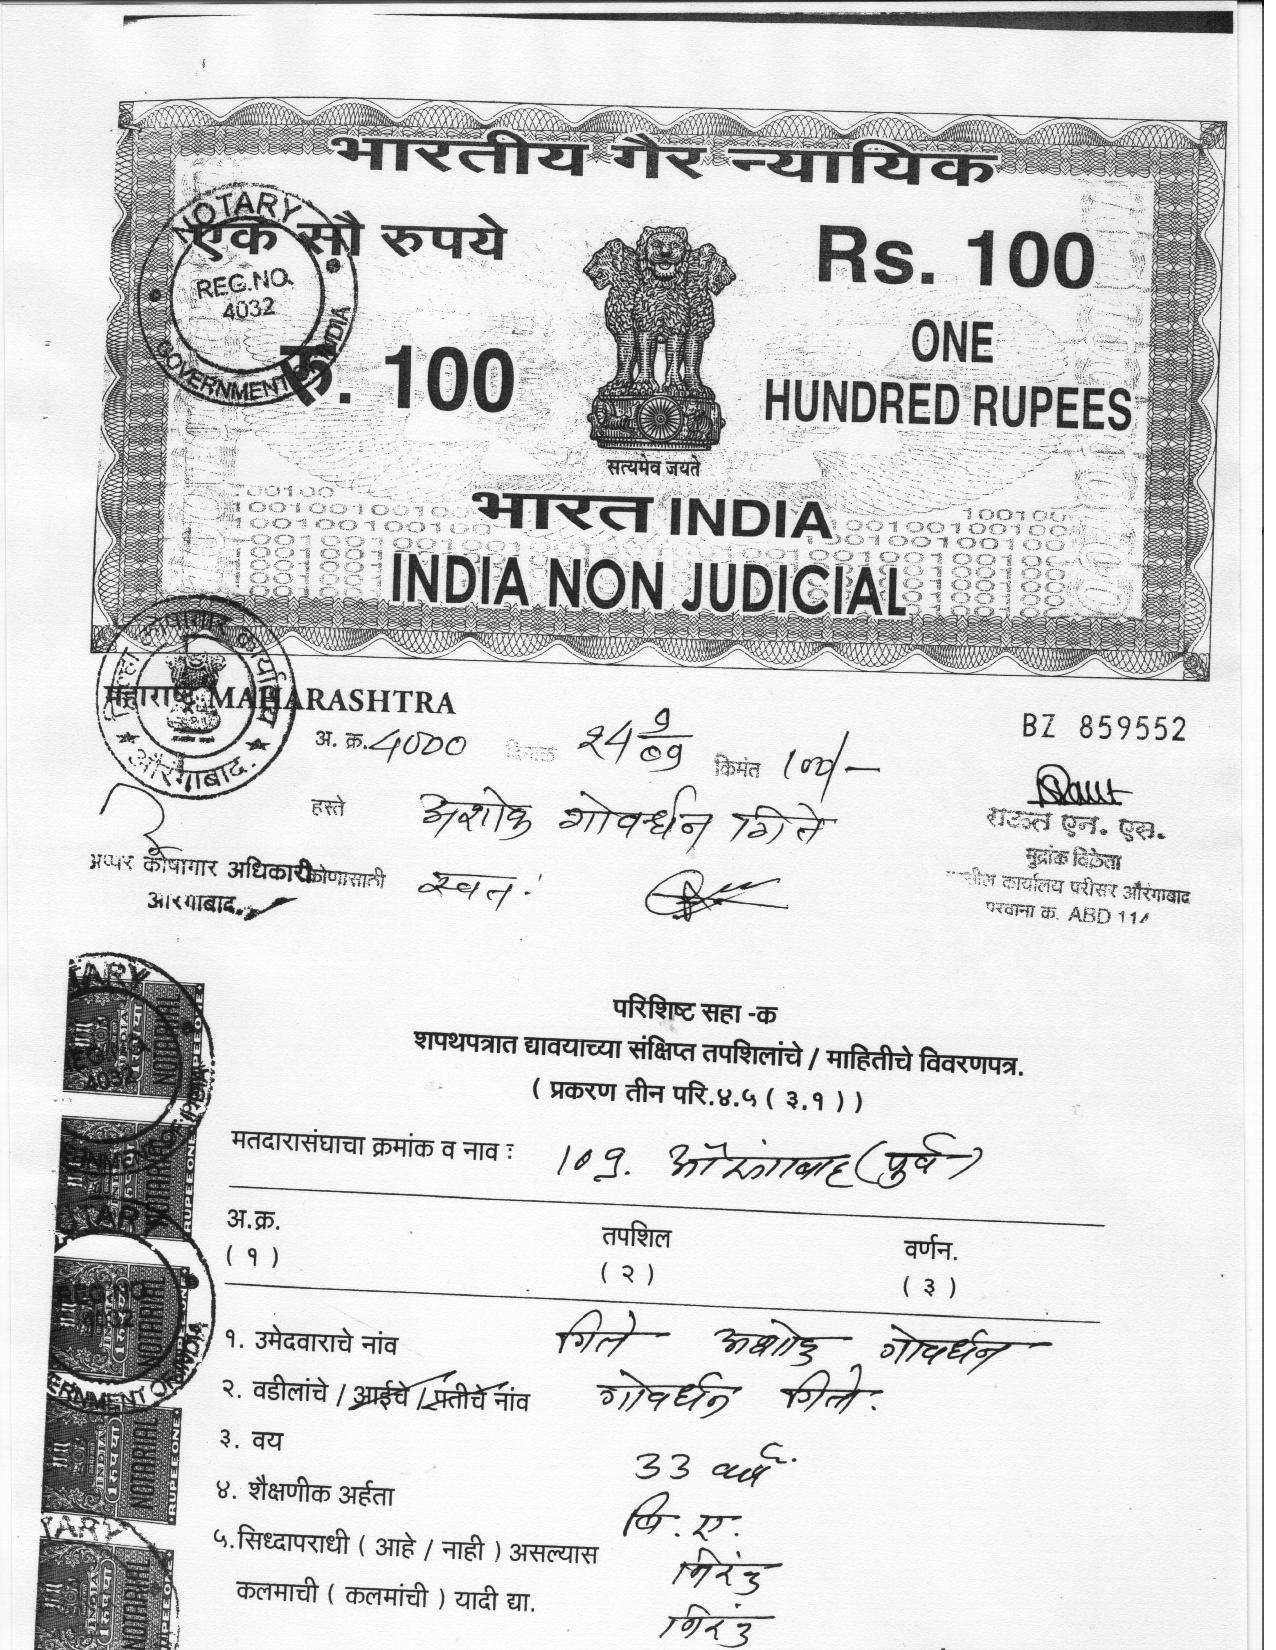 भारतीय गैर न्यायिक
एक सौ रुपये
Rs. 100
रु. 100
ONE
HUNDRED RUPEES
सत्यमेव जयते
भारत INDIA
INDIA NON JUDICIAL
NOTARY
REG.NO.
4032
GOVERNMENT OF INDIA
कोषागार कार्यालय
औरंगाबाद.
महाराष्ट्र MAHARASHTRA
BZ 859552
अ. क्र. 4000 दिनांक किमंत 100/-
हस्ते अशोक गोवर्धन गिते
राऊत एन. एस.
मुद्रांक विक्रेता
कार्यालय परीसर औरंगाबाद
परवाना क. ABD 114
अप्पर कोषागार अधिकारी
औरंगाबाद.
कोणासाठी स्वतः
परिशिष्ट सहा -क
शपथपत्रात द्यावयाच्या संक्षिप्त तपशिलांचे / माहितीचे विवरणपत्र.
( प्रकरण तीन परि.४.५ ( ३.१ ) )
मतदारासंघाचा क्रमांक व नाव : 109. औरंगाबाद (पुर्व)
अ.क्र. तपशिल वर्णन.
( १ ) ( २ ) ( ३ )
१. उमेदवाराचे नांव गिते अशोक गोवर्धन
२. वडीलांचे / आईचे / पतीचे नांव गोवर्धन गिते.
३. वय 33 वर्ष.
४. शैक्षणीक अर्हता बि. ए.
५.सिध्दापराधी ( आहे / नाही ) असल्यास निरंक
कलमाची ( कलमांची ) यादी द्या. निरंक
NOTARIAL
INDIA
RUPEE ONE